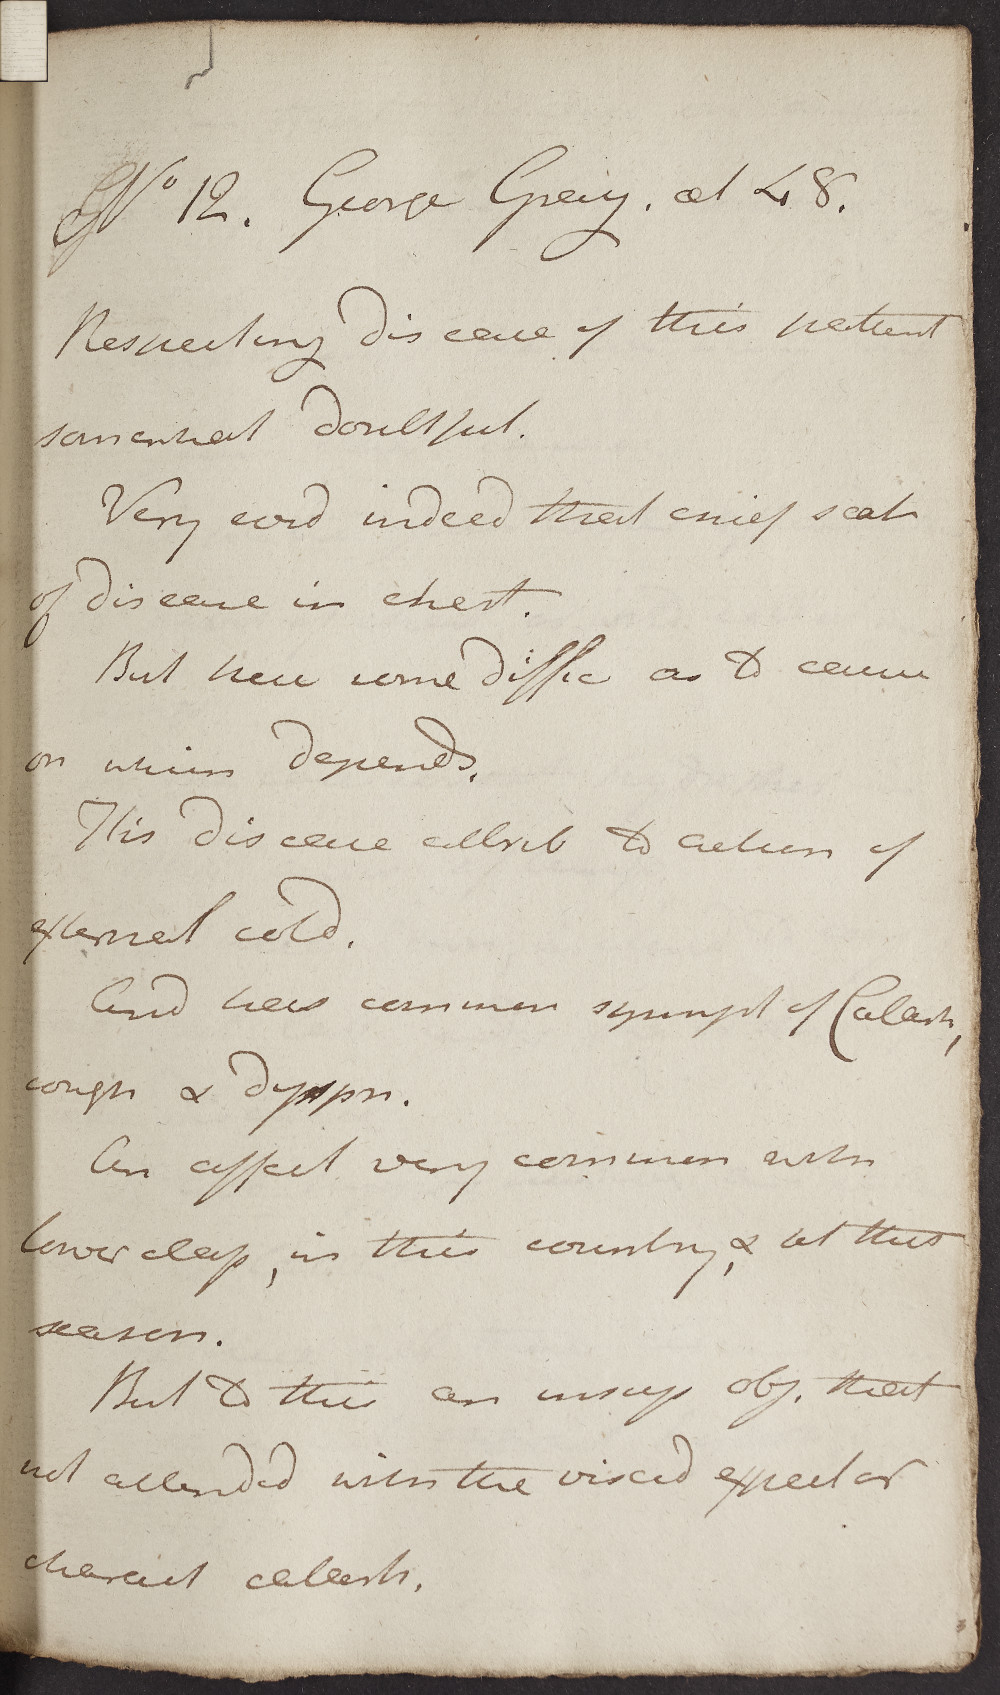 No 12. George Greig. æt 48.
Respecting disease of this patient
somewhat doubtful.
Very evid indeed that chief seat
of disease in chest.
But here some diffic as to cause
on which depends.
This disease attrib to action of
external cold.
And has common sympt of Catarrh,
cough & dyspn.
An affect very common with
lower class, in this country, & at this
season.
But to this an insup obj. that
not attended with the viscid expect or
charact catarrh.